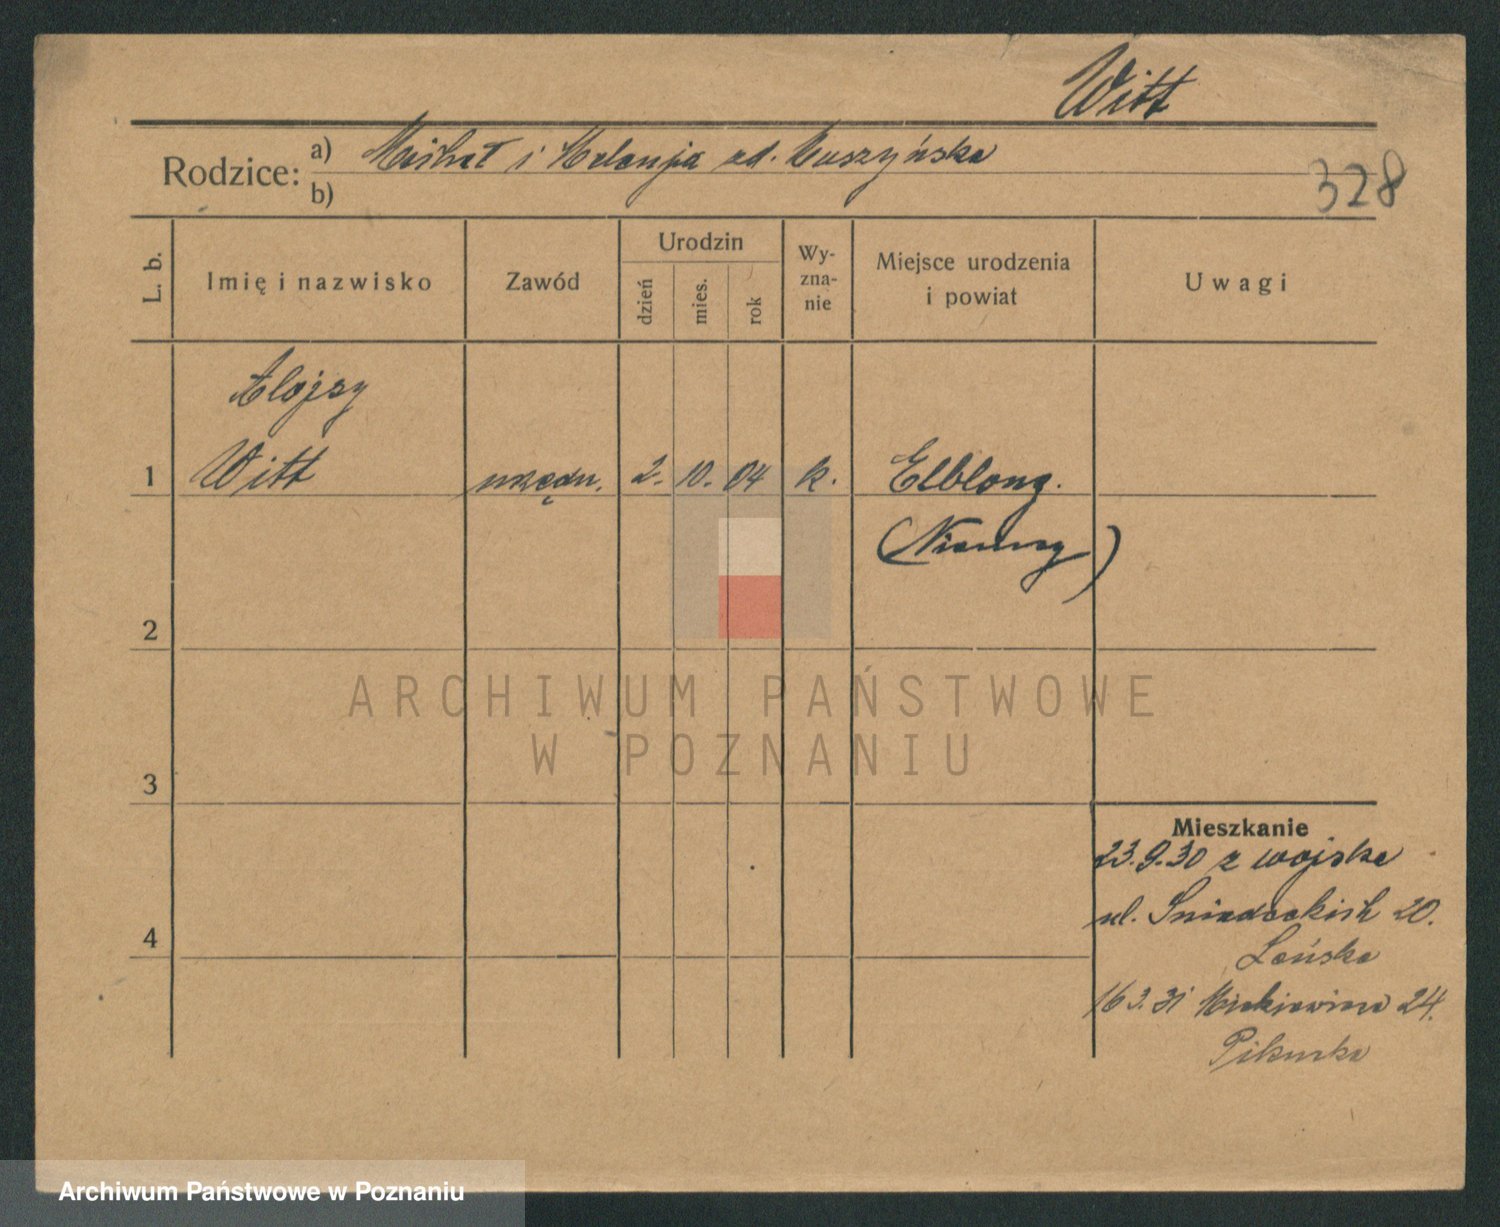 Witt
Rodzice: a) Michał i Melanja zd. Muszyńska
b)
328
L. b.
Imię i nazwisko
Zawód
Urodzin
dzień
mies.
rok
Wy-
zna-
nie
Miejsce urodzenia
i powiat
Uwagi
Alojzy
1 Witt urzędn. 2. 10. 04 k. Elblong.
(Niemcy)
2
ARCHIWUM PAŃSTWOWE
W POZNANIU
3
Mieszkanie
23.9.30 z wojska
ul. Śniadeckich 20.
4
Lańska
16 3. 31 Mickiewicza 24.
Pikurka
Archiwum Państwowe w Poznaniu